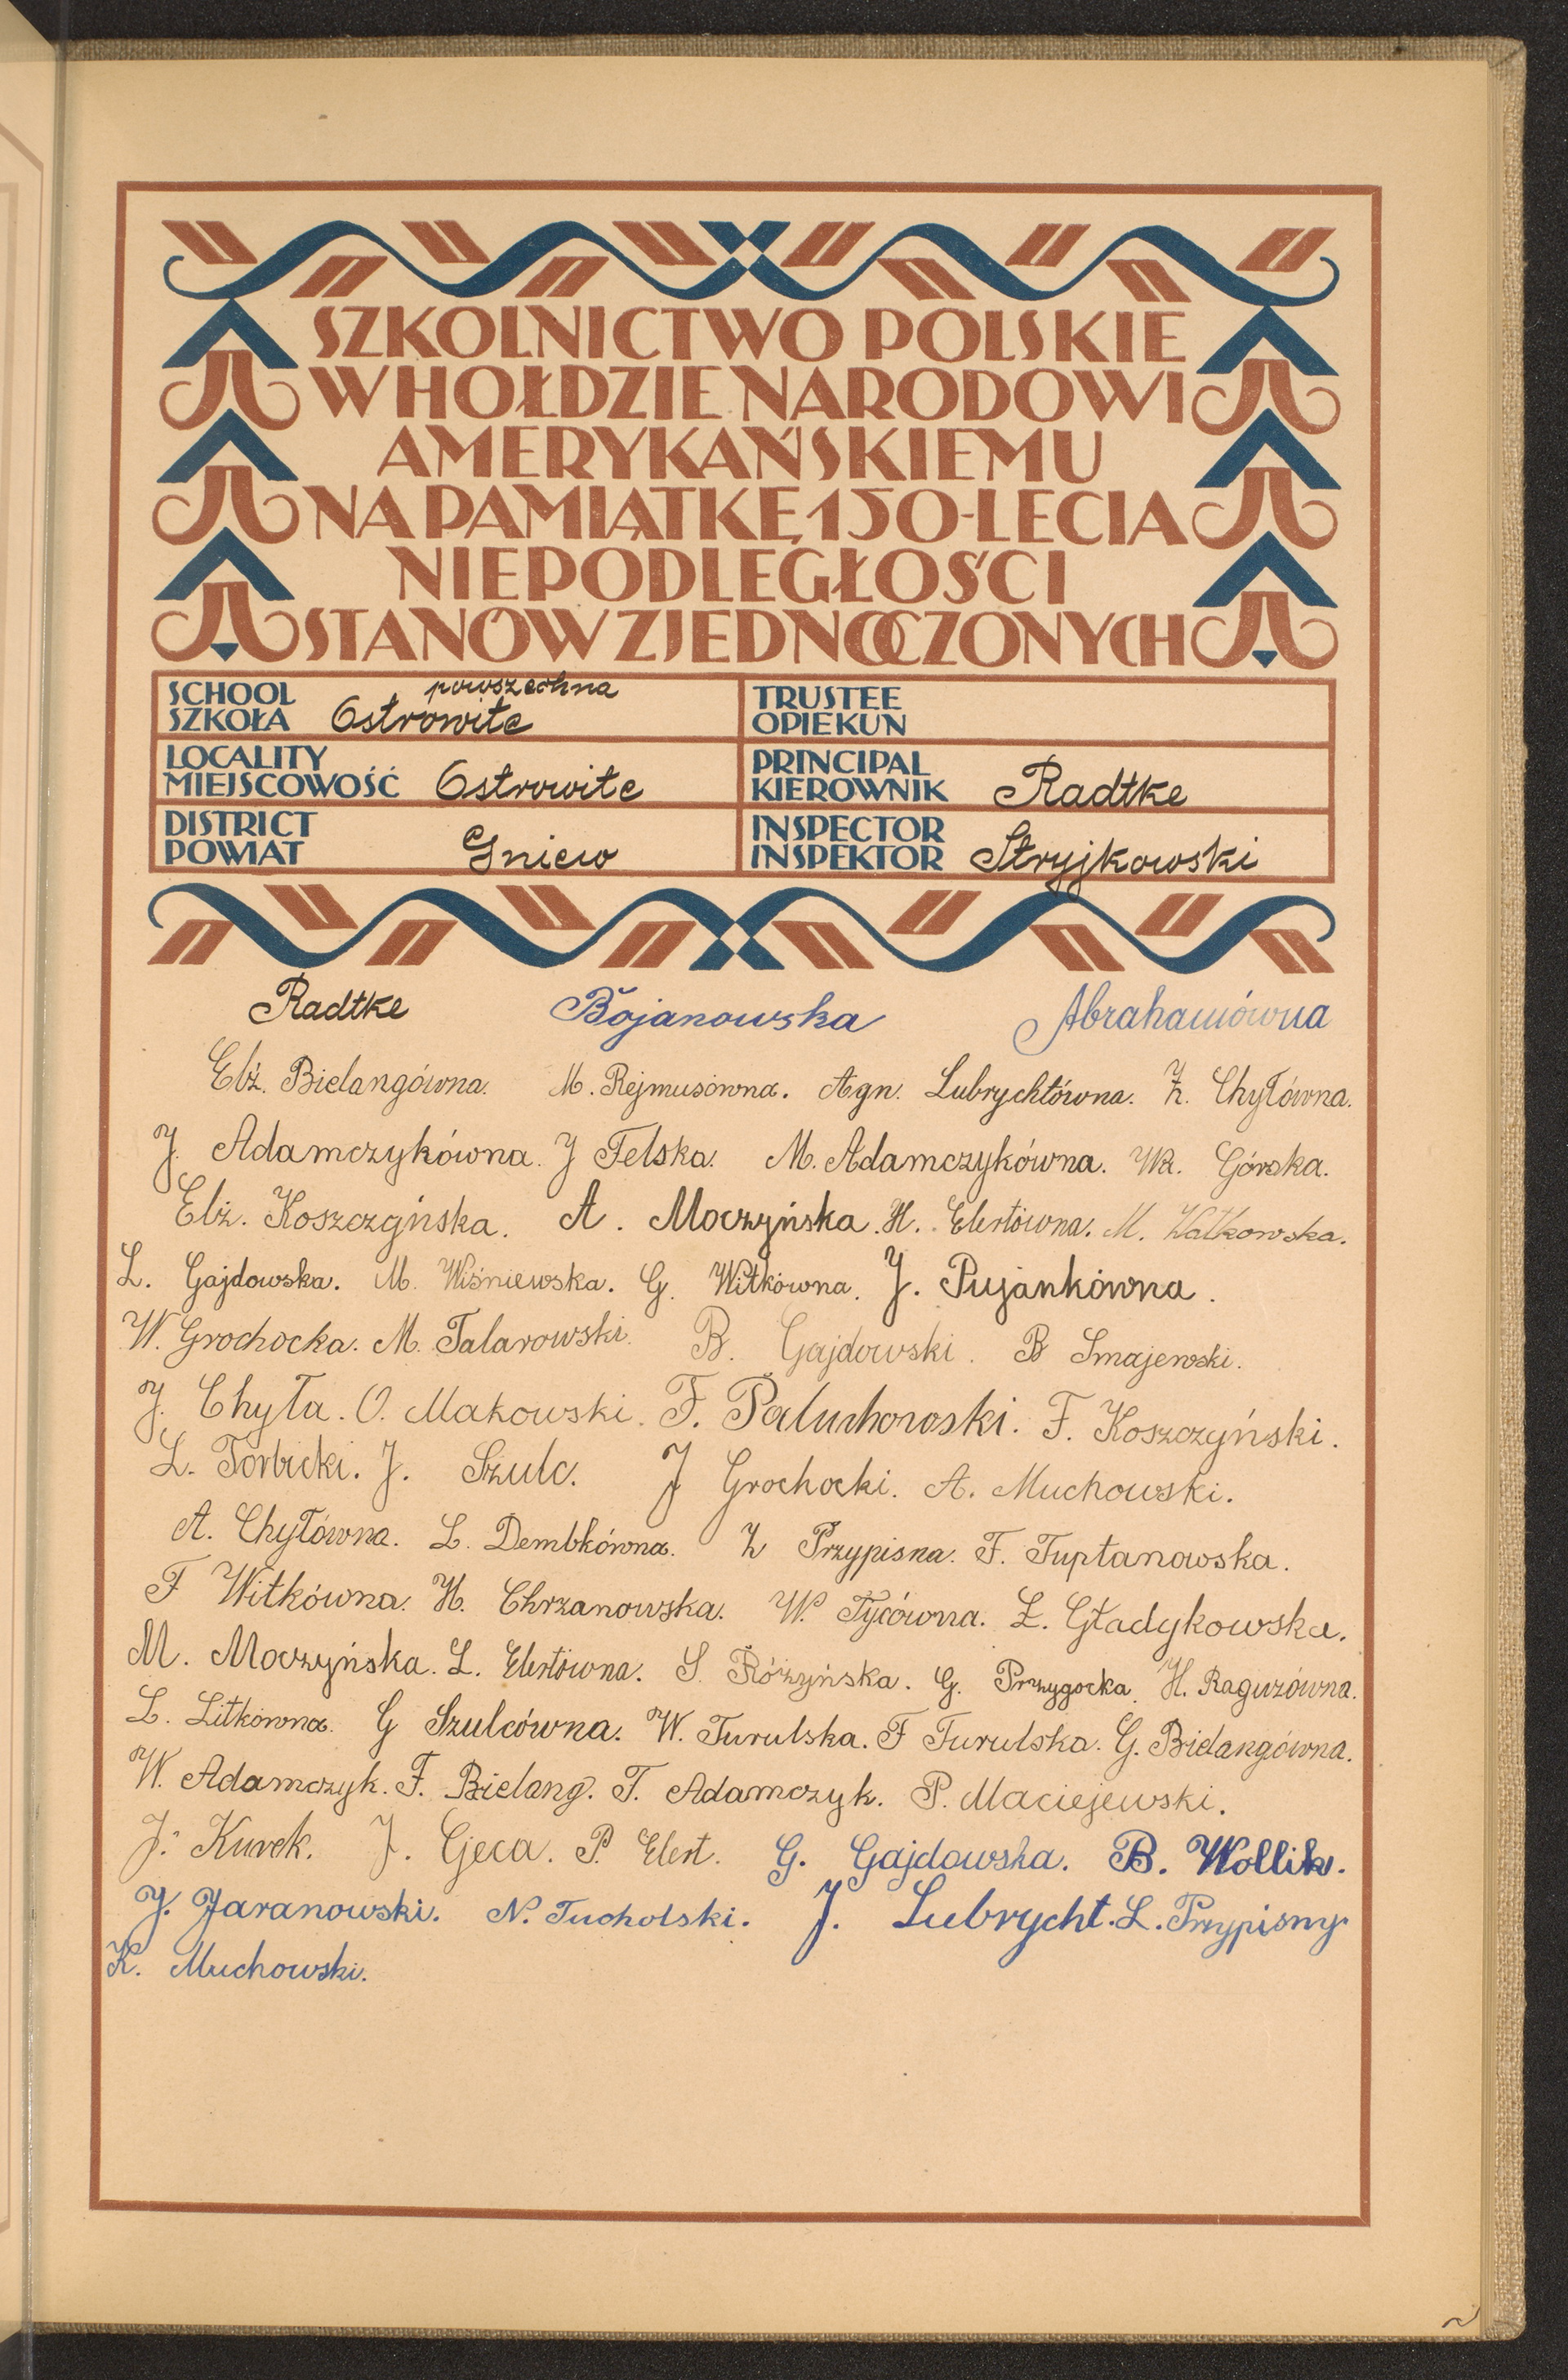 SZKOLNICTWO POLSKIE
W HOŁDZIE NARODOWI
AMERYKAŃSKIEMU
NA PAMIĄTKĘ 150-LECIA
NIEPODLEGŁOŚCI
STANÓW ZJEDNOCZONYCH
SCHOOL powszechna
SZKOŁA Ostrowite
TRUSTEE
OPIEKUN
LOCALITY
MIEJSCOWOŚĆ Ostrowite
PRINCIPAL
KIEROWNIK Radtke
DISTRICT
POWIAT Gniew
INSPECTOR
INSPEKTOR Stryjkowski
Radtke Bojanowska Abrahamówna
Elż. Bielangówna. M. Rejmusówna. Agn. Lubrychtówna. Z. Chyłówna.
J. Adamczykówna. J Felska. M. Adamczykówna. Wa. Górska.
Elż. Koszczyńska. A. Moczyńska. H. Elertówna. M. Watkowska.
L. Gajdowska. M. Wiśniewska. G. Witkówna. J. Pujankówna.
W. Grochocka. M. Talarowski. B. Gajdowski. B Smajewski.
J. Chyła. O. Makowski. F. Paluchowski. F. Koszczyński.
L. Torbicki. J. Szulc. J Grochocki. A. Muchowski.
A. Chyłówna. L. Dembkówna. Z Przypisna. F. Tuptanowska.
F Witkówna. H. Chrzanowska. W. Tycówna. Ł. Gładykowska.
M. Moczyńska. L. Elertówna. S. Różyńska. G. Przygocka. H. Raguzówna.
L. Litkówna. G Szulcówna. W. Turulska. F Turulska. G. Bielangówna.
W. Adamczyk. F. Bielang. T. Adamczyk. P. Maciejewski.
J. Kurek. J. Gjeca. P. Elert. G. Gajdowska. B. Wollik.
J. Jaranowski. N. Tucholski. J. Lubrycht. L. Przypisny.
K. Muchowski.